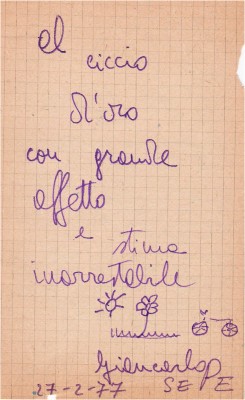 al
ciccio
d'oro
con grande
affetto
e stima
inarrestabile
Giancarlo
27-2-77 SEPE